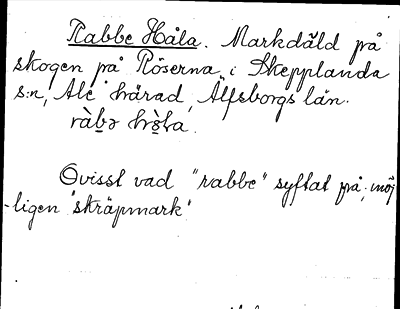 Rabbe Håla. Markdäld på
skogen på Röserna i Skepplanda
s:n, Ale härad, Älfsborgs län.
ràbə hò̤la.
Ovisst vad "rabbe" syftat på; möj
-ligen "skräpmark"